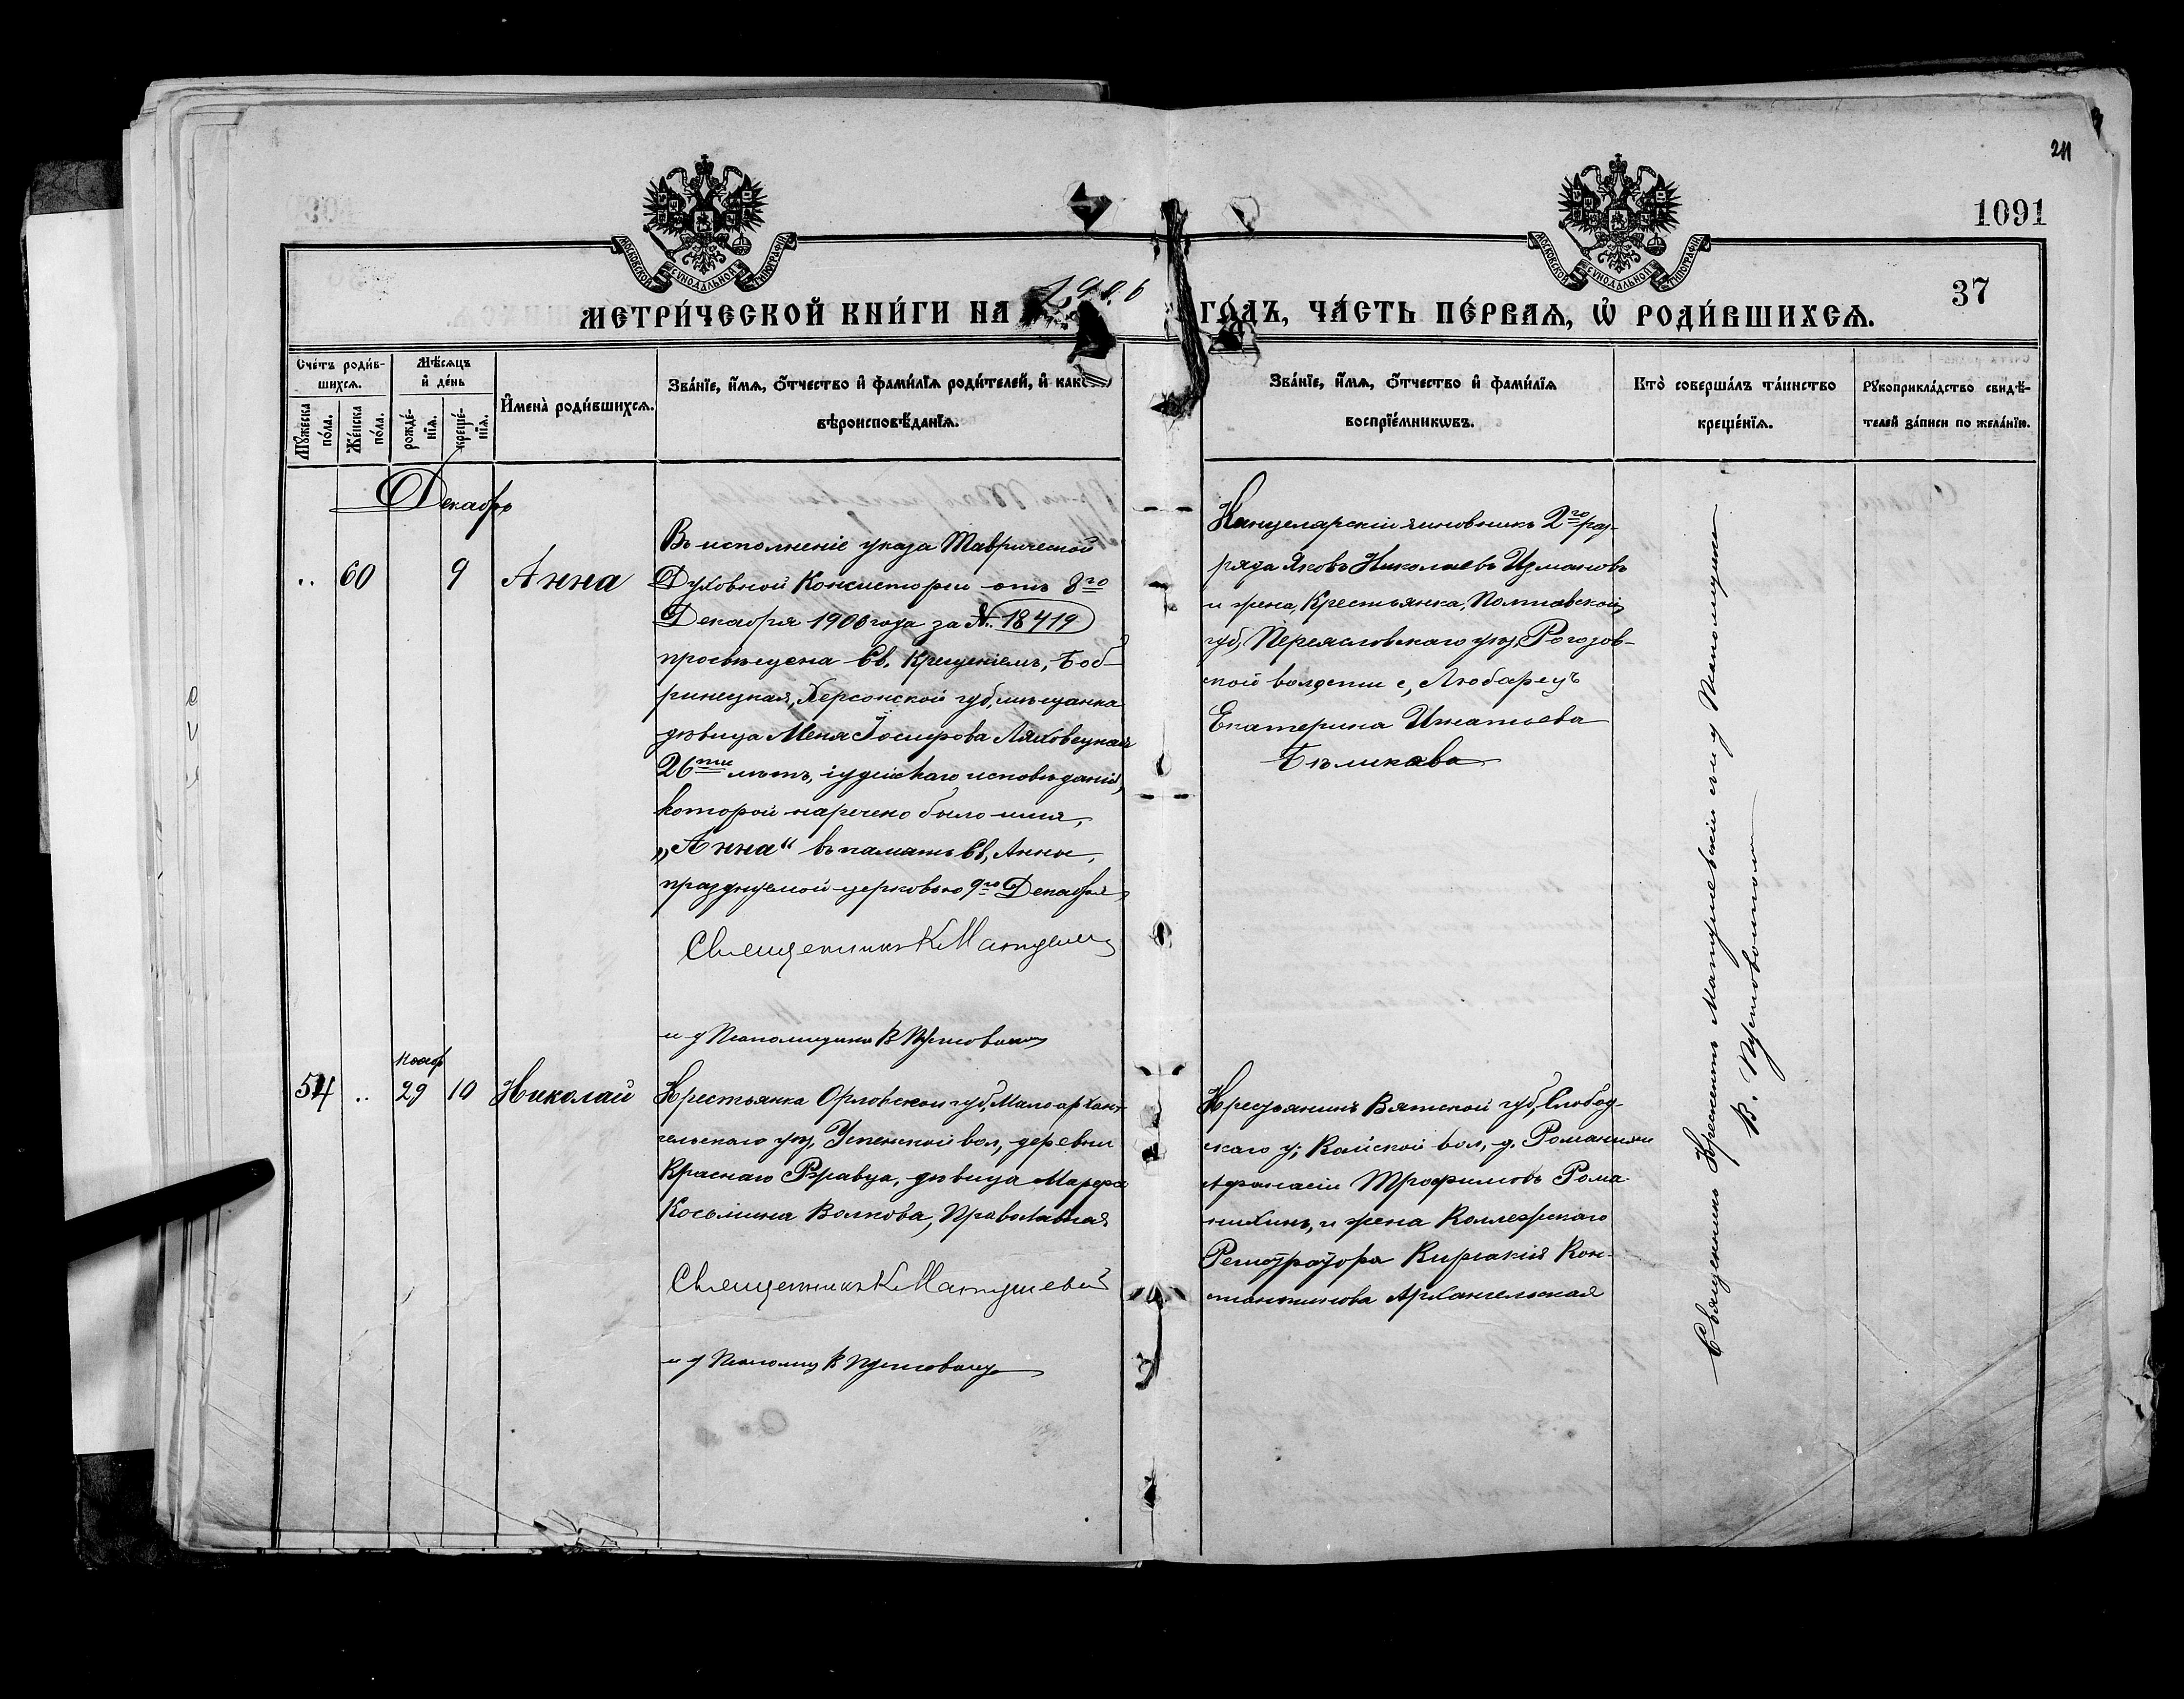 211
1091
37
МОСКОВСКОЙ СѴНОДАЛЬНОЙ ТИПОГРАФІИ
МОСКОВСКОЙ СѴНОДАЛЬНОЙ ТИПОГРАФІИ
МЕТРИ́ЧЕСКОЙ КНИ́ГИ НА 1906 ГО́ДЪ, ЧА́СТЬ ПЕ́РВАѦ, Ѡ҆ РОДИ́ВШИХСѦ.
Сче́тъ роди́в-
шихсѧ.
Мꙋ́жеска по́ла.
Же́нска по́ла.
Мѣ́сѧцъ и҆ де́нь
рожде́-
нїѧ.
креще́-
нїѧ.
И҆мена̀ роди́вшихсѧ.
Зва́нїе, и҆́мѧ, ѻ҆́тчество и҆ фами́лїѧ роди́телей, и҆ како
вѣроисповѣ́данїѧ.
Зва́нїе, и҆́мѧ, ѻ҆́тчество и҆ фами́лїѧ
воспрїе́мникѡвъ.
Кто̀ соверша́лъ та́инство
креще́нїѧ.
Рꙋкоприкла́дство свидѣ́-
телей за́писи по жела́нїю.
Декабрь
.. 60 9 Анна
Въ исполненіе указа Таврической
Духовной Консисторіи отъ 8го
Декабря 1906 года за №. 18419
просвѣщена Св. Крещеніемъ, Боб-
ринецкая, Херсонской губ, мѣщанка
дѣвица Меня Іосифова Ляховецкая
26ти лѣтъ, іудейскаго исповѣданія,
которой наречено было имя,
„Анна“ въ память Св, Анны,
празднуемой церковью 9го Декабря,
Священникъ К Матушев
и д Псаломщика В Пустовойт
Канцелярскій чиновникъ 2го раз-
ряда Яковъ Николаевъ Измаиловъ
и жена, Крестьянка, Полтавской
губ, Переясловскаго уѣз, Рогозов-
ской волости с, Любарецъ
Екатерина Игнатьева
Бѣликова
Ноябр
54 .. 29 10 Николай
Крестьянка Орловской губ, Малоархан-
гельскаго уѣз, Успенской вол, деревни
Краснаго Ржавца, дѣвица Марфа
Косьмина Волкова, Православная
Священникъ К Матушевскій
и д Псаломщ В Пустовойт
Крестьянинъ Вятской губ, Слобод-
скаго у; Кайской вол, д. Романихи
Афанасій Трофимовъ Рома-
нихинъ, и жена Коллежскаго
Регистратора Киріакія Кон-
стантинова Архангельская
Священникъ Крескентъ Матушевскій и д Псаломщика
В. Пустовойтъ